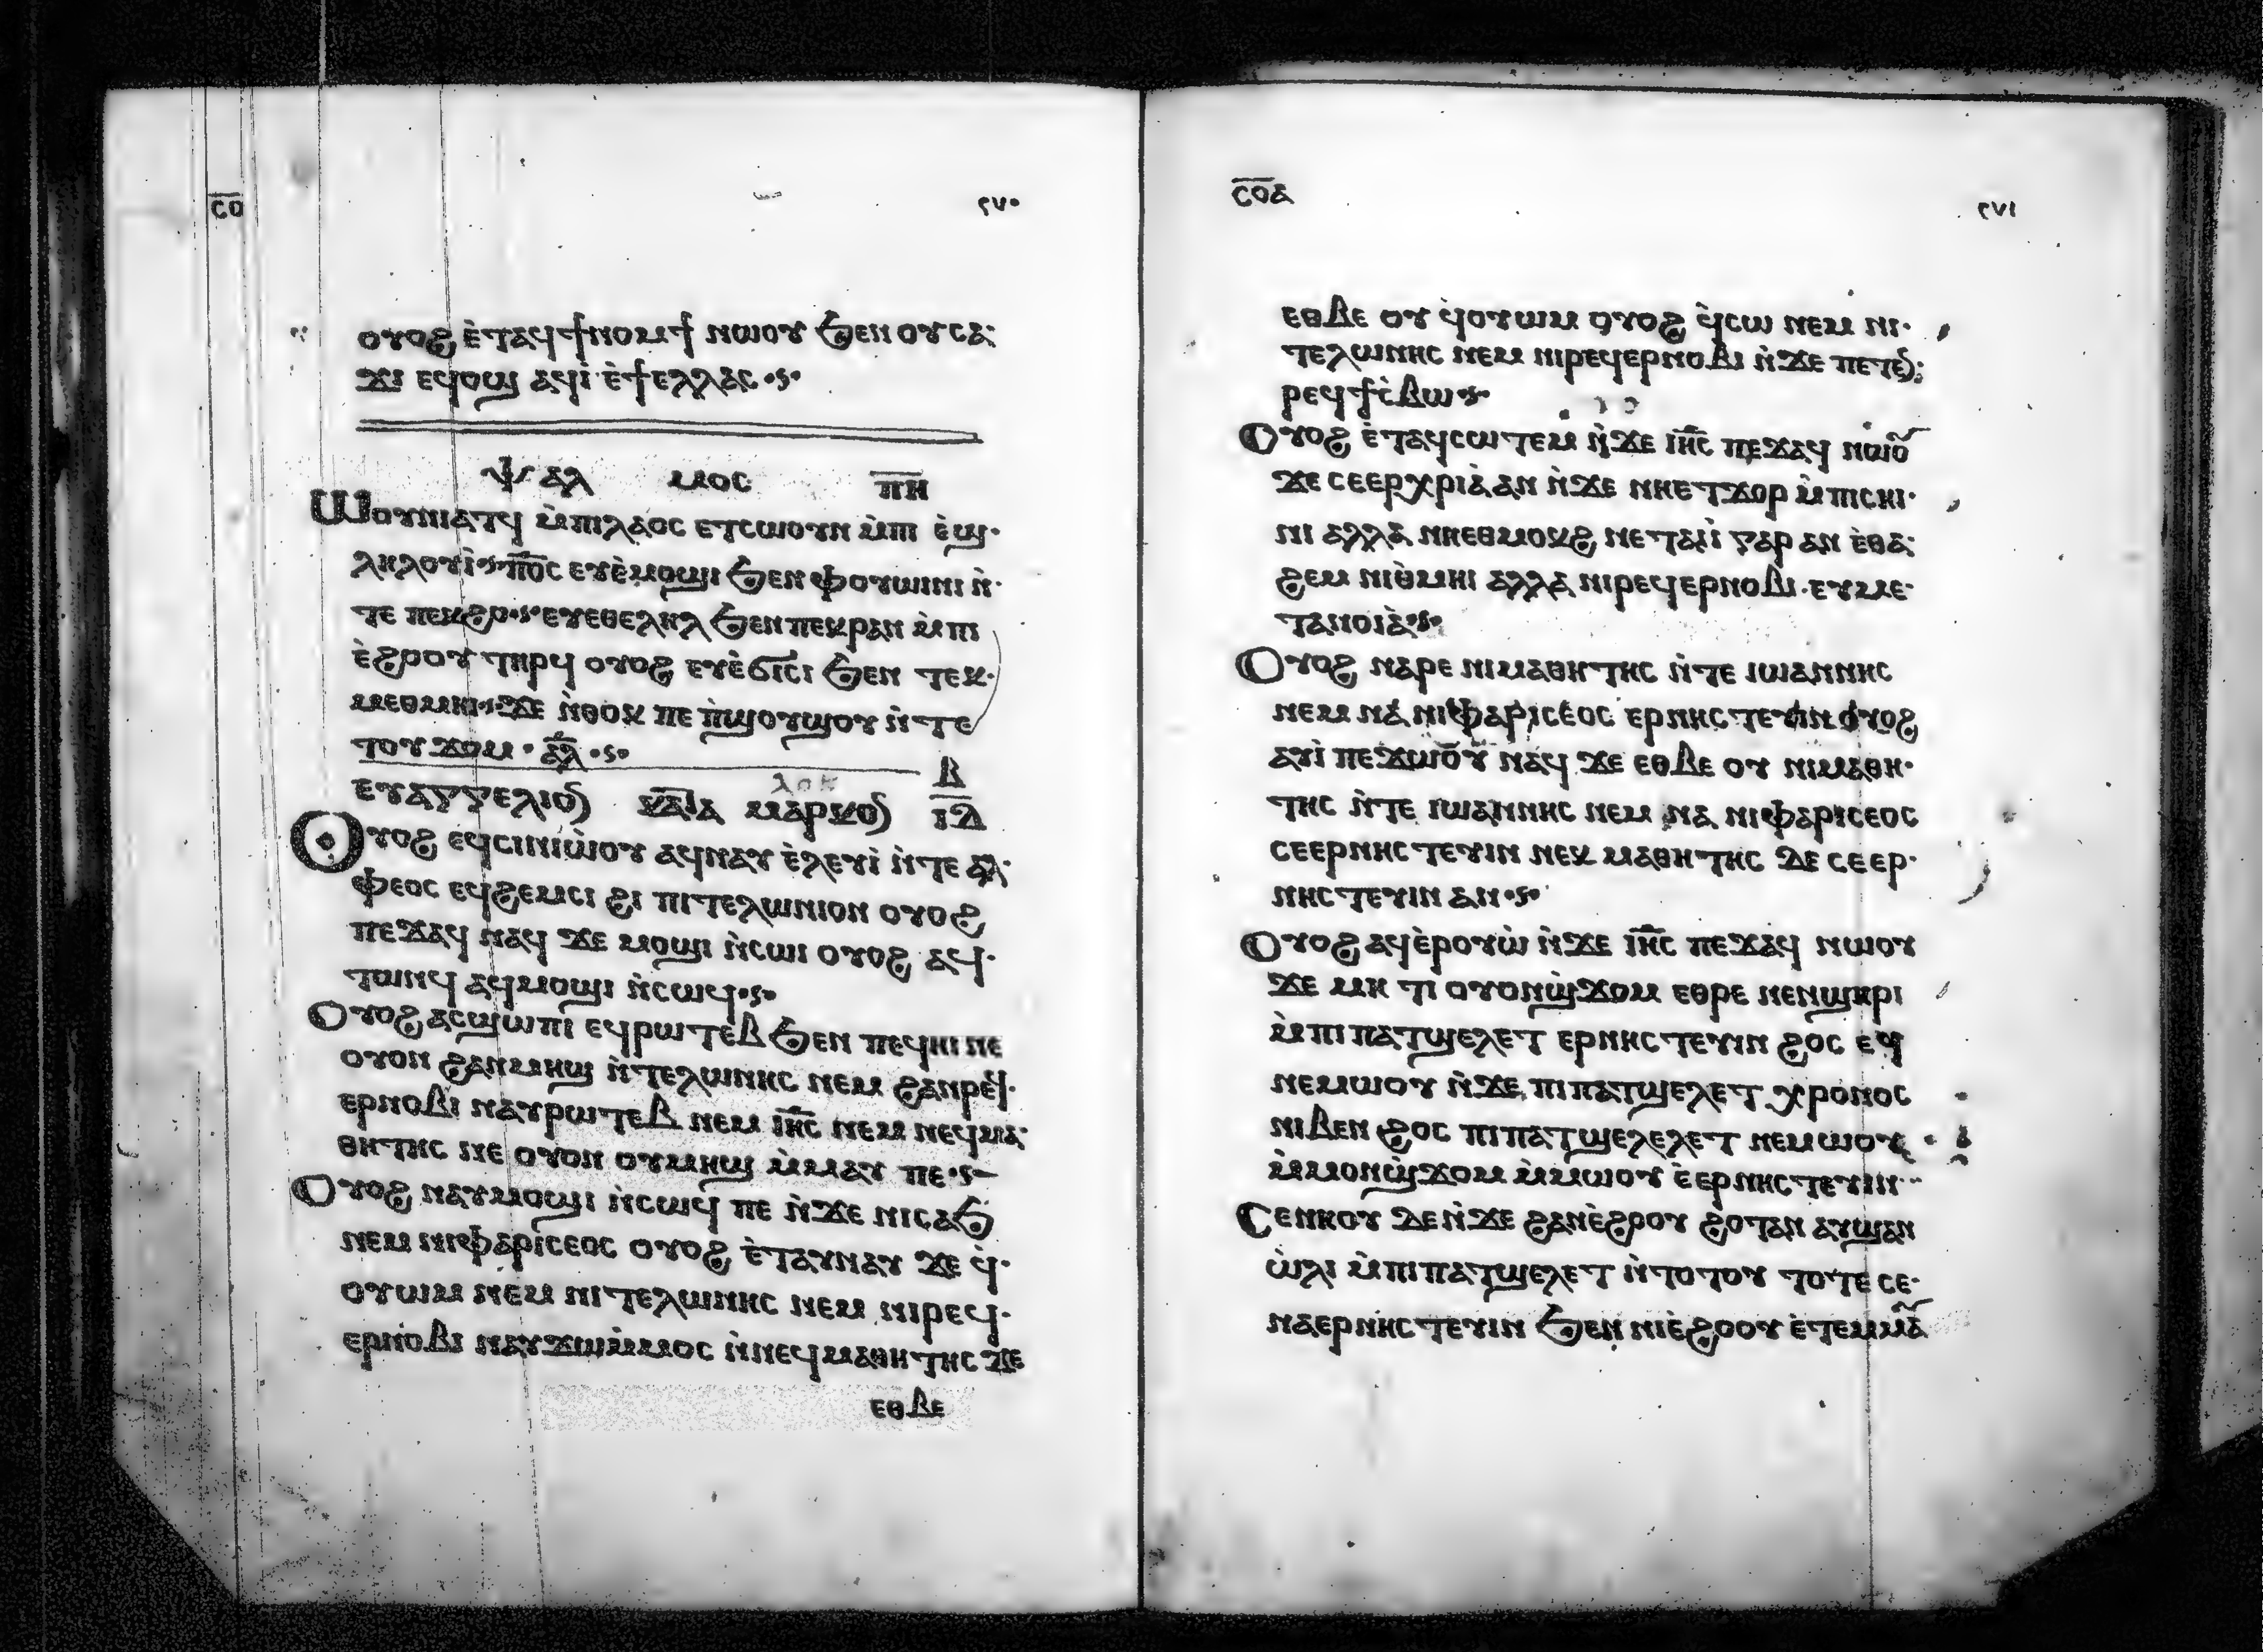 ⲥ̅ⲟ̅ ٢٧٠
ⲟⲩⲟϩ ⲉ̀ⲧⲁϥϯⲛⲟⲙϯ ⲛⲱⲟⲩ ϧⲉⲛ ⲟⲩⲥⲁ
ϫⲓ ⲉϥⲟϣ ⲁϥⲓ̀ ⲉ̀ϯⲉⲗⲗⲁⲥ
ⲯⲁⲗ ⲙⲟⲥ ⲡ̅ⲏ̅
ⲱⲟⲩⲛⲓⲁⲧϥ ⲙ̀ⲡⲓⲗⲁⲟⲥ ⲉⲧⲥⲱⲟⲩⲛ ⲙ̀ⲡⲓ ⲉ̀ϣ
ⲗⲏⲗⲟⲩⲓ̀ ⲡ̅ⲟ̅ⲥ̅ ⲉⲩⲉ̀ⲙⲟϣⲓ ϧⲉⲛ ⲫⲟⲩⲱⲓⲛⲓ ⲛ̀
ⲧⲉ ⲡⲉⲕϩⲟ ⲉⲩⲉⲑⲉⲗⲏⲗ ϧⲉⲛ ⲡⲉⲕⲣⲁⲛ ⲙ̀ⲡⲓ
ⲉ̀ϩⲟⲟⲩ ⲧⲏⲣϥ ⲟⲩⲟϩ ⲉⲩⲉ̀ϭⲓⲥⲓ ϧⲉⲛ ⲧⲉⲕ
ⲙⲉⲑⲙⲏⲓ ϫⲉ ⲛ̀ⲑⲟⲕ ⲡⲉ ⲡ̀ϣⲟⲩϣⲟⲩ ⲛ̀ⲧⲉ
ⲧⲟⲩϫⲟⲙ ⲁ̅ⲗ̅
ⲉⲩⲁⲅⲅⲉⲗⲓⲟⲛ ⲕⲁⲧⲁ ⲙⲁⲣⲕⲟⲛ ⲓ̅ⲇ̅ ⲃ
ⲟⲩⲟϩ ⲉϥⲥⲓⲛⲓⲱ̀ⲟⲩ ⲁϥⲛⲁⲩ ⲉ̀ⲗⲉⲩⲓ̀ ⲛ̀ⲧⲉ ⲁⲗ
ⲫⲉⲟⲥ ⲉϥϩⲉⲙⲥⲓ ϩⲓ ⲡⲓⲧⲉⲗⲱⲛⲓⲟⲛ ⲟⲩⲟϩ
ⲡⲉϫⲁϥ ⲛⲁϥ ϫⲉ ⲙⲟϣⲓ ⲛ̀ⲥⲱⲓ ⲟⲩⲟϩ ⲁϥ
ⲧⲱⲛϥ ⲁϥⲙⲟϣⲓ ⲛ̀ⲥⲱϥ
ⲟⲩⲟϩ ⲁⲥϣⲱⲡⲓ ⲉϥⲣⲱⲧⲉⲃ ϧⲉⲛ ⲡⲉϥⲏⲓ ⲛⲉ
ⲟⲩⲟⲛ ϩⲁⲛⲙⲏϣ ⲛ̀ⲧⲉⲗⲱⲛⲏⲥ ⲛⲉⲙ ϩⲁⲛⲣⲉϥ
ⲉⲣⲛⲟⲃⲓ ⲛⲁⲩⲣⲱⲧⲉⲃ ⲛⲉⲙ ⲓ̅ⲏ̅ⲥ̅ ⲛⲉⲙ ⲛⲉϥⲙⲁ
ⲑⲏⲧⲏⲥ ⲛⲉ ⲟⲩⲟⲛ ⲟⲩⲙⲏϣ ⲙ̀ⲙⲁⲩ ⲡⲉ
ⲟⲩⲟϩ ⲛⲁⲩⲙⲟϣⲓ ⲛ̀ⲥⲱϥ ⲡⲉ ⲛ̀ϫⲉ ⲛⲓⲥⲁϧ
ⲛⲉⲙ ⲛⲓⲫⲁⲣⲓⲥⲉⲟⲥ ⲟⲩⲟϩ ⲉ̀ⲧⲁⲩⲛⲁⲩ ϫⲉ ϥ̀
ⲟⲩⲱⲙ ⲛⲉⲙ ⲛⲓⲧⲉⲗⲱⲛⲏⲥ ⲛⲉⲙ ⲛⲓⲣⲉϥ
ⲉⲣⲛⲟⲃⲓ ⲛⲁⲩϫⲱⲙ̀ⲙⲟⲥ ⲛ̀ⲛⲉϥⲙⲁⲑⲏⲧⲏⲥ ϫⲉ
ⲉⲑⲃⲉ
ⲥ̅ⲟ̅ⲁ̅ ٢٧١
ⲉⲑⲃⲉ ⲟⲩ ϥ̀ⲟⲩⲱⲙ ⲟⲩⲟϩ ϥ̀ⲥⲱ ⲛⲉⲙ ⲛⲓ
ⲧⲉⲗⲱⲛⲏⲥ ⲛⲉⲙ ⲛⲓⲣⲉϥⲉⲣⲛⲟⲃⲓ ⲛ̀ϫⲉ ⲡⲉⲧⲉⲛ
ⲣⲉϥϯⲥ̀ⲃⲱ
ⲟⲩⲟϩ ⲉ̀ⲧⲁϥⲥⲱⲧⲉⲙ ⲛ̀ϫⲉ ⲓ̅ⲏ̅ⲥ̅ ⲡⲉϫⲁϥ ⲛⲱⲟⲩ
ϫⲉ ⲥⲉⲉⲣⲭⲣⲓⲁ̀ ⲁⲛ ⲛ̀ϫⲉ ⲛⲏⲉⲧϫⲟⲣ ⲙ̀ⲡⲓⲥⲏⲓ
ⲛⲓ ⲁⲗⲗⲁ ⲛⲏⲉⲑⲙⲟⲕϩ ⲛⲉⲧⲁⲓⲓ̀ ⲅⲁⲣ ⲁⲛ ⲉ̀ⲑⲁ
ϩⲉⲙ ⲛⲓⲑ̀ⲙⲏⲓ ⲁⲗⲗⲁ ⲛⲓⲣⲉϥⲉⲣⲛⲟⲃⲓ ⲉⲩⲙⲉ
ⲧⲁⲛⲟⲓⲁ̀
ⲟⲩⲟϩ ⲛⲁⲣⲉ ⲛⲓⲙⲁⲑⲏⲧⲏⲥ ⲛ̀ⲧⲉ ⲓⲱⲁⲛⲛⲏⲥ
ⲛⲉⲙ ⲛⲁ ⲛⲓⲫⲁⲣⲓⲥⲉⲟⲥ ⲉⲣⲛⲏⲥⲧⲉⲩⲓⲛ ⲟⲩⲟϩ
ⲁⲩⲓ̀ ⲡⲉϫⲱⲟⲩ ⲛⲁϥ ϫⲉ ⲉⲑⲃⲉ ⲟⲩ ⲛⲓⲙⲁⲑⲏ
ⲧⲏⲥ ⲛ̀ⲧⲉ ⲓⲱⲁⲛⲛⲏⲥ ⲛⲉⲙ ⲛⲁ ⲛⲓⲫⲁⲣⲓⲥⲉⲟⲥ
ⲥⲉⲉⲣⲛⲏⲥⲧⲉⲩⲓⲛ ⲛⲉⲕⲙⲁⲑⲏⲧⲏⲥ ⲇⲉ ⲥⲉⲉⲣ
ⲛⲏⲥⲧⲉⲩⲓⲛ ⲁⲛ
ⲟⲩⲟϩ ⲁϥⲉ̀ⲣⲟⲩⲱ̀ ⲛ̀ϫⲉ ⲓ̅ⲏ̅ⲥ̅ ⲡⲉϫⲁϥ ⲛⲱⲟⲩ
ϫⲉ ⲙⲏ ⲧⲓ ⲟⲩⲟⲛϣ̀ϫⲟⲙ ⲉⲑⲣⲉ ⲛⲉⲛϣⲏⲣⲓ
ⲙ̀ⲡⲓⲡⲁⲧϣⲉⲗⲉⲧ ⲉⲣⲛⲏⲥⲧⲉⲩⲓⲛ ϩⲟⲥ ⲉϥ
ⲛⲉⲙⲱⲟⲩ ⲛ̀ϫⲉ ⲡⲓⲡⲁⲧϣⲉⲗⲉⲧ ⲭⲣⲟⲛⲟⲥ
ⲛⲓⲃⲉⲛ ϩⲟⲥ ⲡⲓⲡⲁⲧϣⲉⲗⲉⲗⲉⲧ ⲛⲉⲙⲱⲟⲩ
ⲙ̀ⲙⲟⲛϣ̀ϫⲟⲙ ⲙ̀ⲙⲱⲟⲩ ⲉ̀ⲉⲣⲛⲏⲥⲧⲉⲩⲓⲛ
ⲥⲉⲛⲏⲟⲩ ⲇⲉ ⲛ̀ϫⲉ ϩⲁⲛⲉ̀ϩⲟⲟⲩ ϩⲟⲧⲁⲛ ⲁⲩϣⲁⲛ
ⲱ̀ⲗⲓ ⲙ̀ⲡⲓⲡⲁⲧϣⲉⲗⲉⲧ ⲛ̀ⲧⲟⲧⲟⲩ ⲧⲟⲧⲉ ⲥⲉ
ⲛⲁⲉⲣⲛⲏⲥⲧⲉⲩⲓⲛ ϧⲉⲛ ⲛⲓⲉ̀ϩⲟⲟⲩ ⲉ̀ⲧⲉⲙⲙⲁⲩ